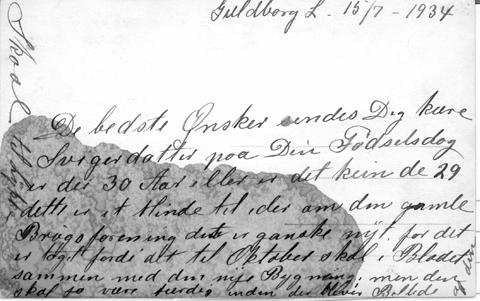 Guldborg L. 15/7 - 1934
Skaal
De bedste Ønsker sendes Dig kære
Svigerdatter paa Din Fødselsdag
er det 30 Aar eller er det kun de 29
dette er et Minde til om den gamle
Brugsforening dette er ganske nyt. for det
er fordi at til Oktober skal i Bladet
sammen med den nye Bygning. men den
skal så være færdig inden der bliver